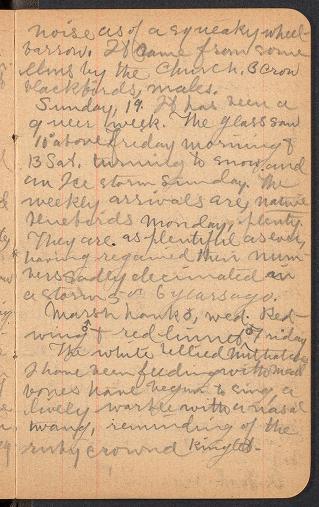 noise as of a squeaky wheel-
barrow. It came from some
elms by the Church. 3 Crow
blackbirds, males.
Sunday, 19. It has been a
queer week. The glass saw
10° above Friday morning &
13 Sat. turning to snow, and
an Ice storm Sunday. The
weekly arrivals are, native
bluebirds Monday, plenty.
They are as plentiful as ever,
having regained their num-
bers sadly decimated in
a storm 5 or 6 years ago.
Marsh hawks, wed. Red-
wings & red linnets Friday
The white bellied nuthatches
I have been feeding with meat
bones have begun to sing, a
lively warble with a nasal
twang, reminding of the
ruby crowned Kinglet-